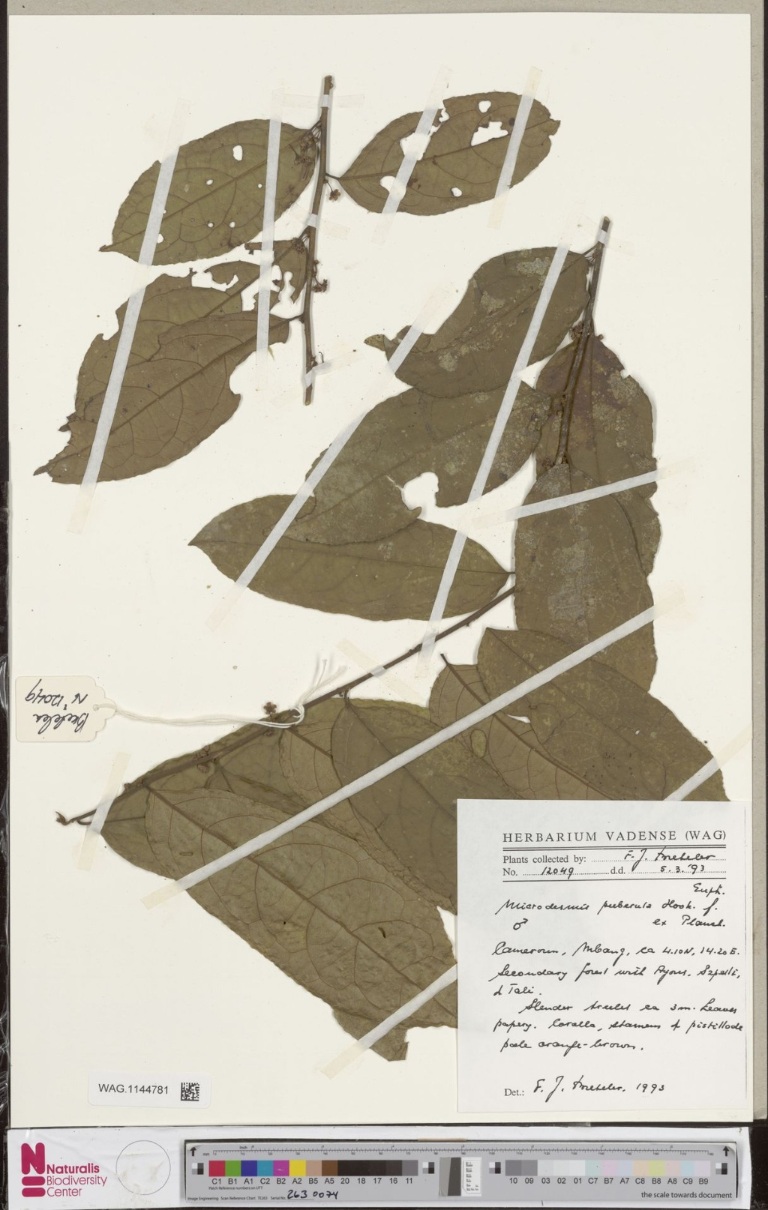 Breteler
N° 12049
HERBARIUM VADENSE (WAG)
Plants collected by: F. J. Breteler
No. 12049 d.d. 5.3.'93
Euph.
Microdesmis puberula Hook. f.
♂ ex Planch.
Cameroun, Mbang, ca 4.10N, 14.20E.
Secondary forest with Ayous, Sapelli,
& Tali.
Slender treelet ca 3m. Leaves
papery. Corolla, stamens & pistillode
pale orange-brown.
Det.: F. J. Breteler, 1993
WAG.1144781
Naturalis
Biodiversity
Center
C1 B1 A1 C2 B2 A2 B5 A5 20 18 17 16 11
10 09 03 02 01 C7 B7 A7 C8 B8 A8 C9 B9
263 0074
the scale towards document